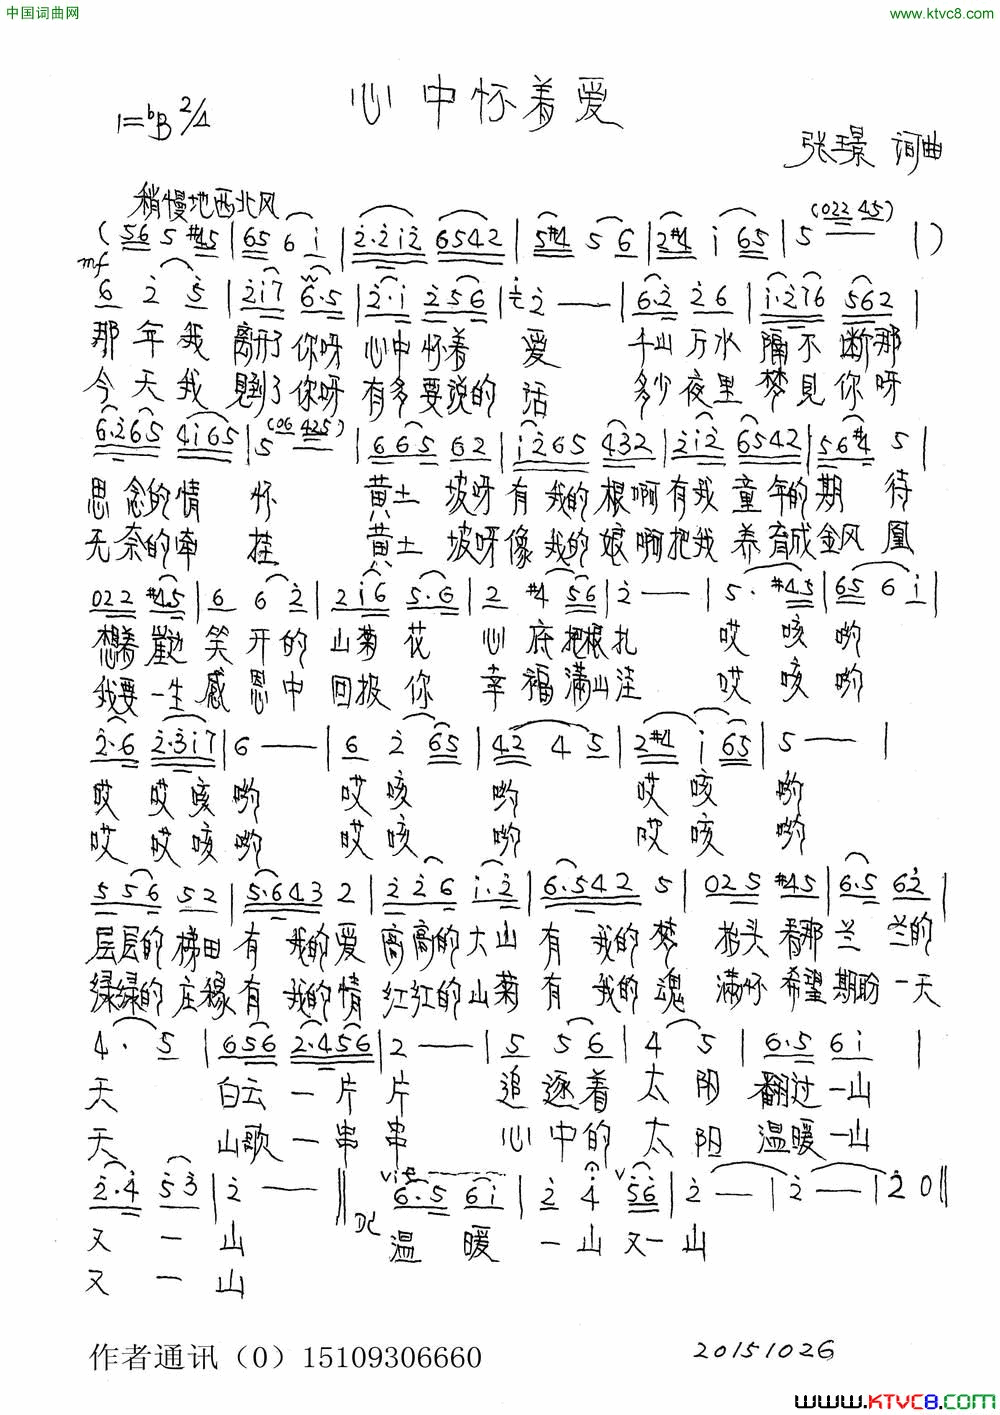 中国词曲网
www.ktvc8.com
心中怀着爱
1=bB 2/4
张璟 词曲
稍慢地西北风
(022 45)
( 56 5 #45 | 65 6 i | 2·2i2 6542 | 5#4 5 6 | 2#4 i 65 | 5 | )
mf
6 2 5 | 2i7 6·5 | 2·i 256 | 2 — | 6·2 26 | i·276 562 |
那年我离开了你呀心中怀着爱千山万水隔不断那
今天我見到了你呀有多要说的话多少夜里梦見你呀
(06 425)
6·265 4i65 | 5 | 665 62 | i265 432 | 2i2 6542 | 56#4 5 |
思念的情怀黄土坡呀有我的根啊有我童年的期待
无奈的牵挂黄土坡呀像我的娘啊把我养育成金凤凰
022 #45 | 6 6 2 | 2i6 5·6 | 2 #4 56 | 2 — | 5· #45 | 65 6 i |
想着欢笑开的山菊花心底把根扎哎咳哟
我要一生感恩中回报你幸福满山洼哎咳哟
2·6 2·3i7 | 6 — | 6 2 65 | 42 4 5 | 2#4 i 65 | 5 — |
哎哎咳哟哎咳哟哎咳哟
哎哎咳哟哎咳哟哎咳哟
556 52 | 5·643 2 | 226 i·2 | 6·542 5 | 025 #45 | 6·5 62 |
层层的梯田有我的爱高高的大山有我的梦抬头看那兰兰的
绿绿的庄稼有我的情红红的山菊有我的魂满怀希望期盼一天
4· 5 | 656 2·456 | 2 — | 5 5 6 | 4 5 | 6·5 6i |
天白云一片片追逐着太阳翻过一山
天山歌一串串心中的太阳温暖一山
2·4 53 | 2 — || DC 6·5 6i | 2 4 v 56 | 2 — | 2 — | 20 ||
又一山温暖一山又一山
又一山
作者通讯（0）15109306660
20151026
www.KTVC8.com